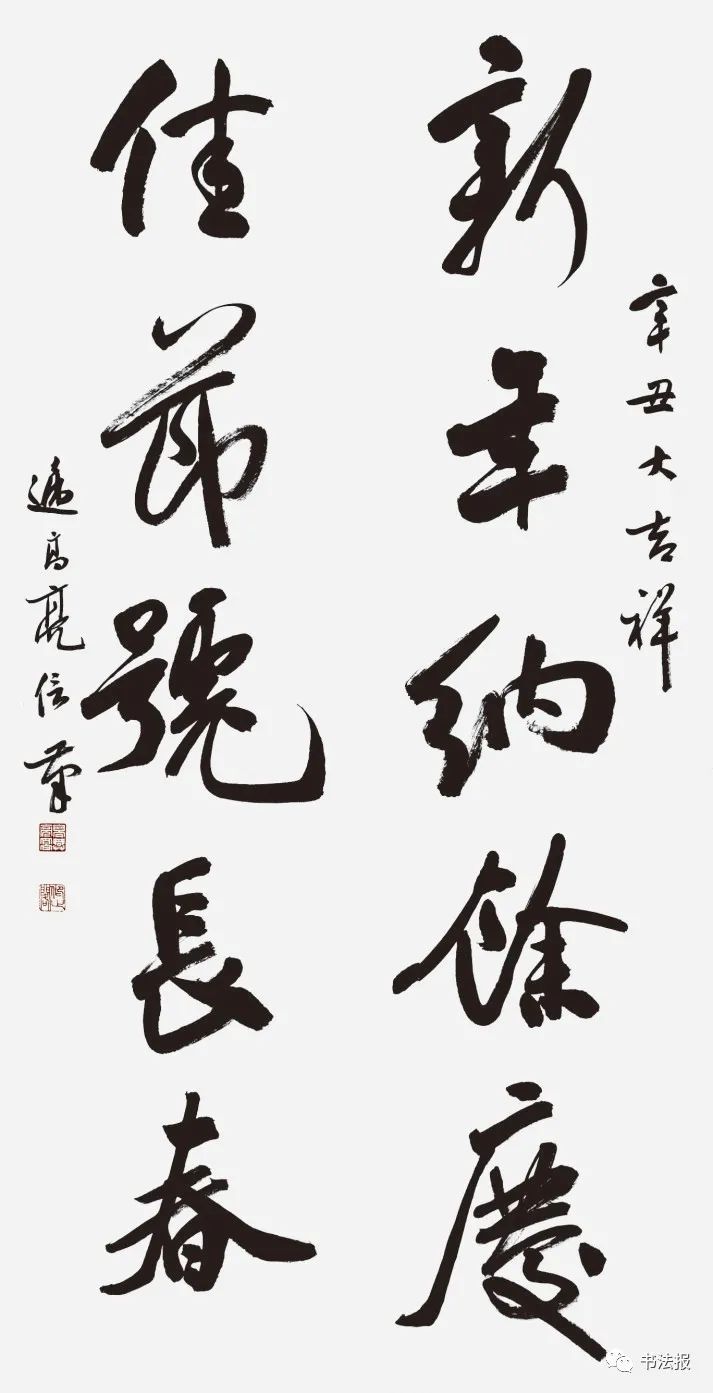 辛丑大吉祥
新年納餘慶
佳節號長春
遞高亮信筆
书法报